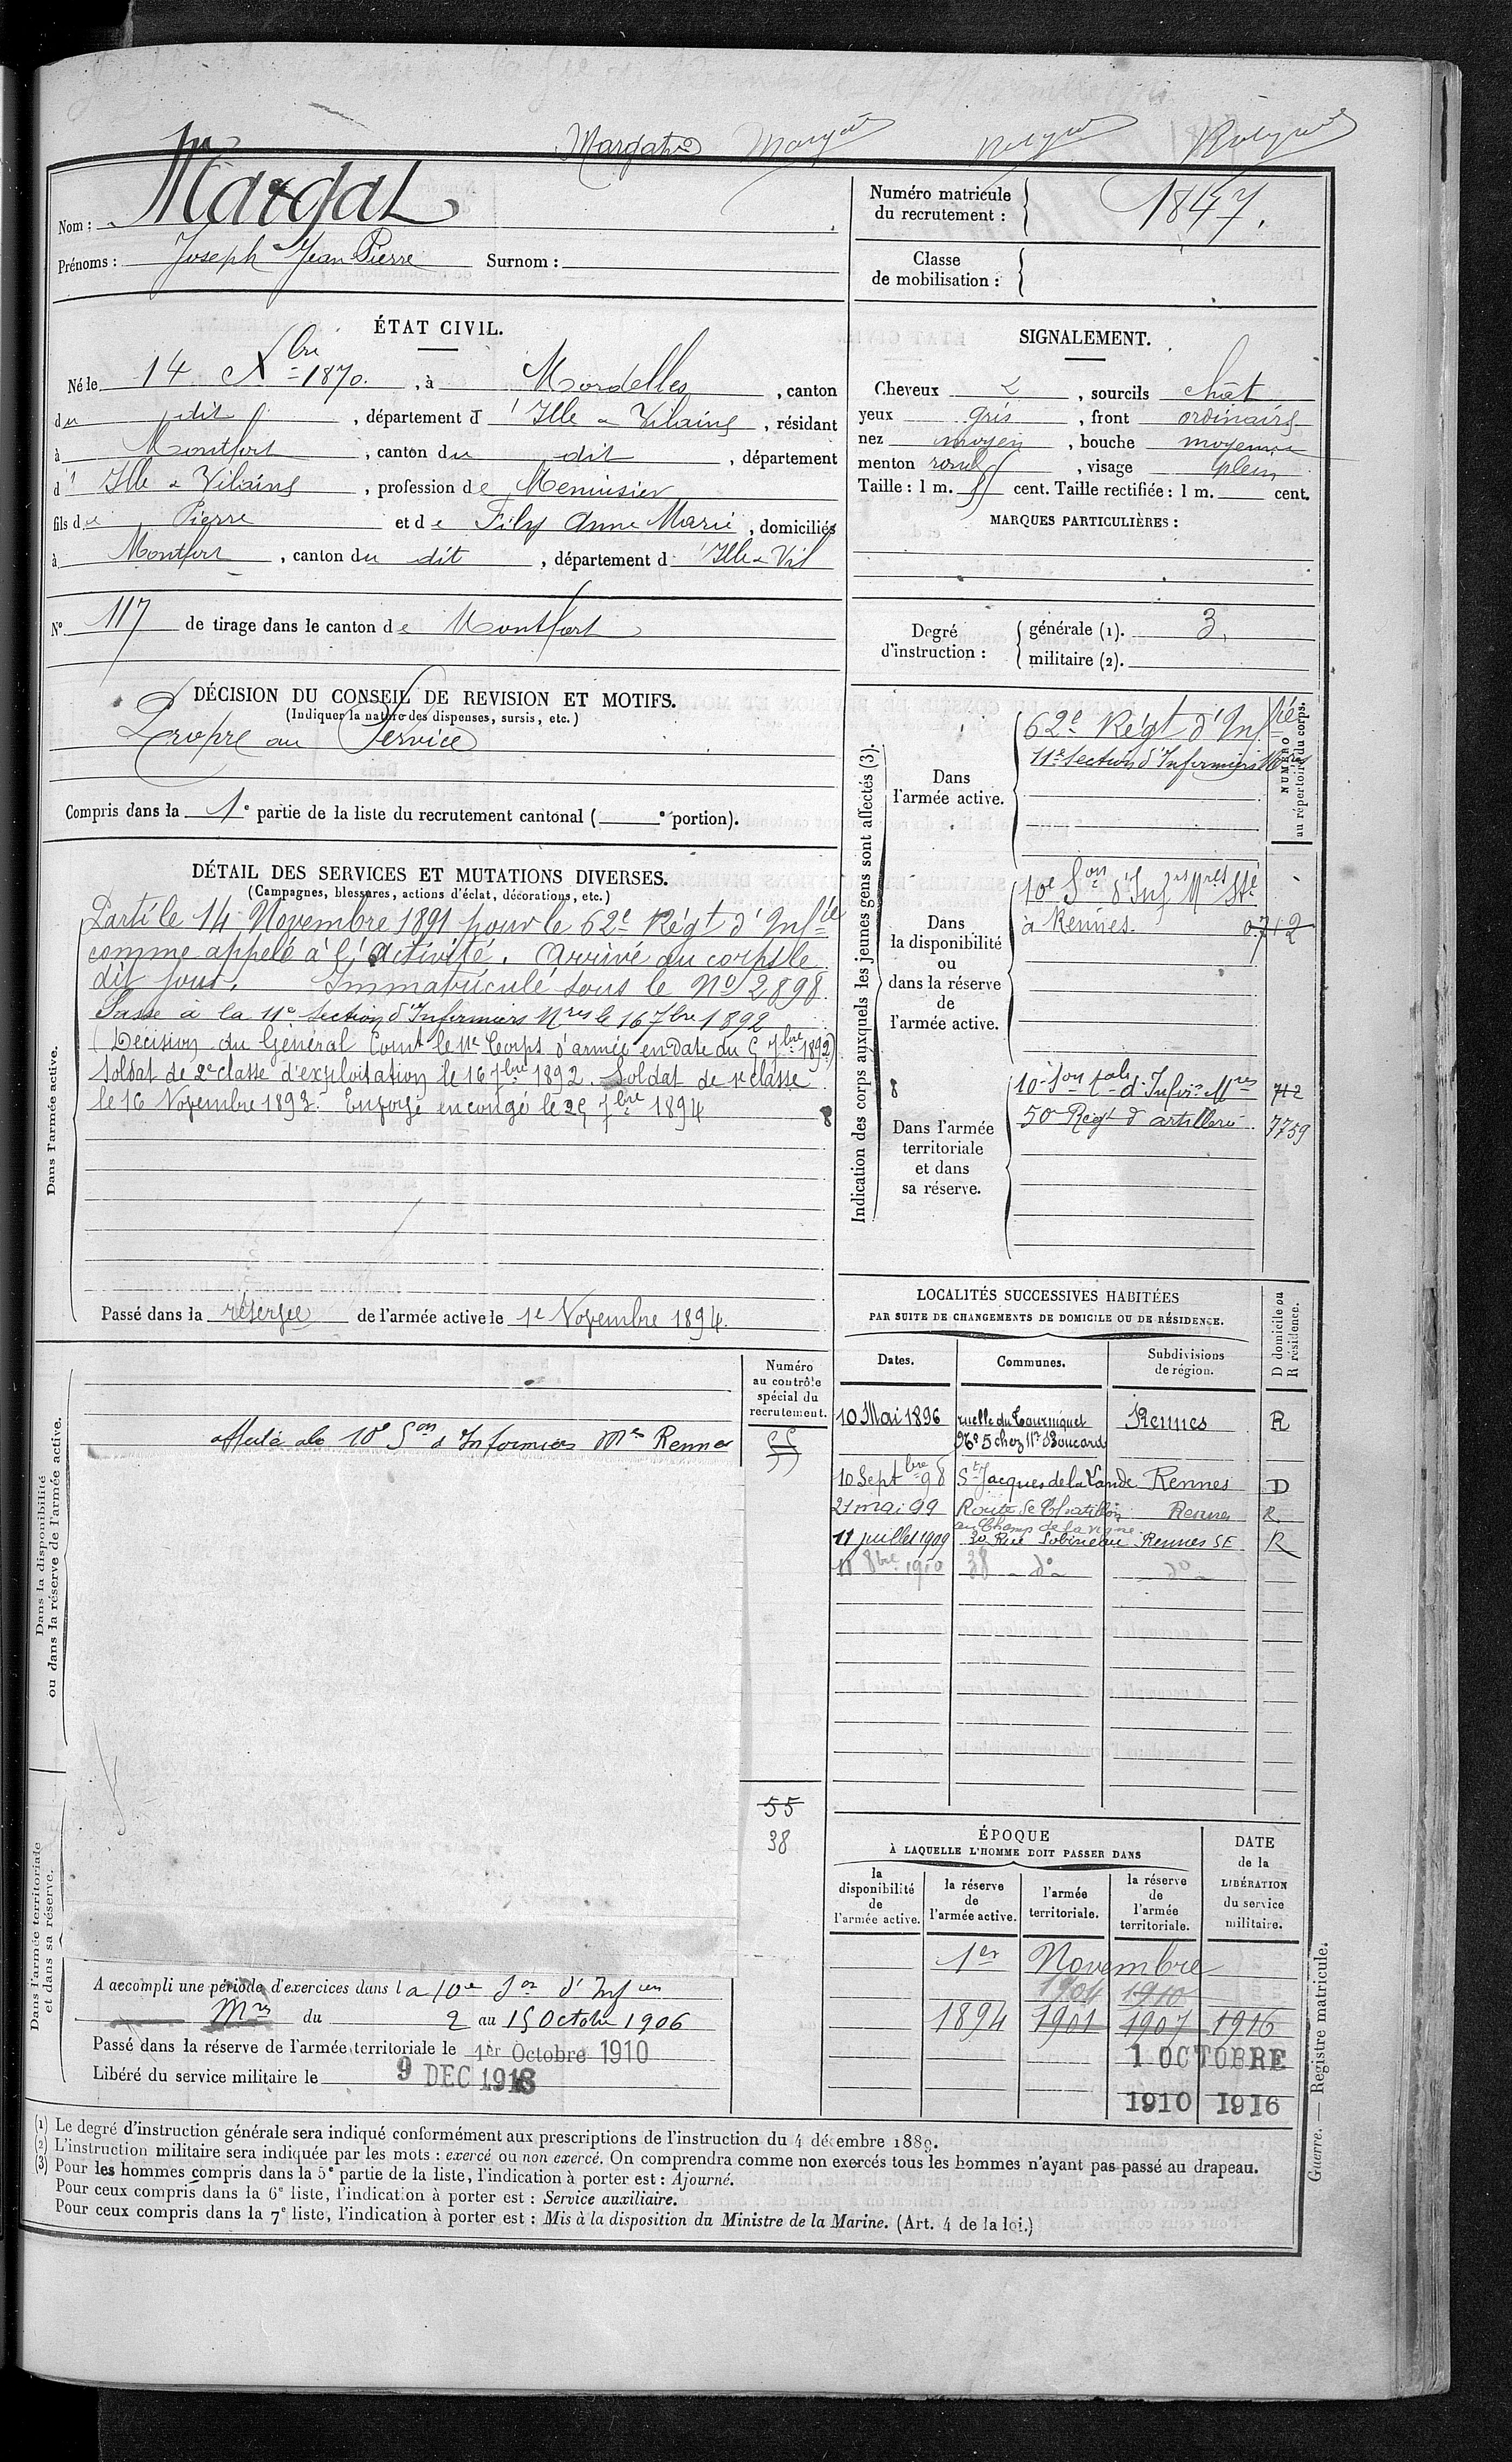 Nom : Margat
Prénoms : Joseph Jean Pierre Surnom :
Numéro matricule du recrutement : 1847.
Classe de mobilisation :
ÉTAT CIVIL.
Né le 14 Xbre 1870. , à Mordelles , canton
du dit , département d'Ille & Vilaine , résidant
à Montfort , canton du dit , département
d'Ille & Vilaine , profession de Menuisier
fils de Pierre et de Fily Anne Marie , domiciliés
à Montfort , canton du dit , département d Ille & Vil
N° 117 de tirage dans le canton de Montfort
SIGNALEMENT.
Cheveux , sourcils chât
yeux gris , front ordinaire
nez moyen , bouche moyenne
menton rond , visage plein
Taille : 1 m. cent. Taille rectifiée : 1 m. cent.
MARQUES PARTICULIÈRES :
Degré d'instruction : générale (1). 3.
militaire (2).
DÉCISION DU CONSEIL DE REVISION ET MOTIFS.
(Indiquer la nature des dispenses, sursis, etc.)
Propre au Service
Compris dans la 1e partie de la liste du recrutement cantonal ( e portion).
DÉTAIL DES SERVICES ET MUTATIONS DIVERSES.
(Campagnes, blessures, actions d'éclat, décorations, etc.)
Dans l'armée active.
Parti le 14 Novembre 1891 pour le 62e Régt d'Infie
comme appelé à l'activité. Arrivé au corps le
dit jour. Immatriculé sous le No 2898.
Passé à la 11e Section d'Infirmiers Mres le 16 7bre 1892
(Décision du Général Comt le 11e Corps d'armée en date du 5 7bre 1892)
Soldat de 2e classe d'exploitation le 16 7bre 1892. Soldat de 1e classe
le 16 Novembre 1893. Envoyé en congé le 25 7bre 1894
Passé dans la réserve de l'armée active le 1e Novembre 1894.
Indication des corps auxquels les jeunes gens sont affectés (3).
NUMÉRO au répertoire du corps.
Dans l'armée active.
62e Régt d'Infrie
11e section d'Infirmiers Mres
Dans la disponibilité ou dans la réserve de l'armée active.
10e Son d'Infres Mres Sté
à Rennes. 0.712
8
Dans l'armée territoriale et dans sa réserve.
10e Son tale d'Infirs Mres 712
50e Régt d'artillerie 7759
LOCALITÉS SUCCESSIVES HABITÉES
PAR SUITE DE CHANGEMENTS DE DOMICILE OU DE RÉSIDENCE.
Dates. Communes. Subdivisions de région. D domicile ou R résidence.
10 Mai 1896 ruelle du Tourniquet Rennes R
No 5 chez Mr Boucard
10 Septbre 98 St Jacques de la Lande Rennes D
21 mai 99 Route de Chatillon Rennes R
au Champ de la vigne
11 juillet 1909 30 Rue Lobineau Rennes SE R
11 8bre 1910 38 do do
Dans la disponibilité ou dans la réserve de l'armée active.
Numéro au contrôle spécial du recrutement.
affecté à la 10e Son d'Infirmiers Mres Rennes
55
38
Dans l'armée territoriale et dans sa réserve.
A accompli une période d'exercices dans la 10e Son d'Infien
Mres du 2 au 15 Octobre 1906
Passé dans la réserve de l'armée territoriale le 1er Octobre 1910
Libéré du service militaire le 9 DEC 1918
ÉPOQUE
À LAQUELLE L'HOMME DOIT PASSER DANS
la disponibilité de l'armée active. la réserve de l'armée active. l'armée territoriale. la réserve de l'armée territoriale. DATE de la LIBÉRATION du service militaire.
1er Novembre
1904 1910
1894 1901 1907 1916
1 OCTOBRE
1910 1916
(1) Le degré d'instruction générale sera indiqué conformément aux prescriptions de l'instruction du 4 décembre 1889.
(2) L'instruction militaire sera indiquée par les mots : exercé ou non exercé. On comprendra comme non exercés tous les hommes n'ayant pas passé au drapeau.
(3) Pour les hommes compris dans la 5e partie de la liste, l'indication à porter est : Ajourné.
Pour ceux compris dans la 6e liste, l'indication à porter est : Service auxiliaire.
Pour ceux compris dans la 7e liste, l'indication à porter est : Mis à la disposition du Ministre de la Marine. (Art. 4 de la loi.)
Guerre. — Registre matricule.